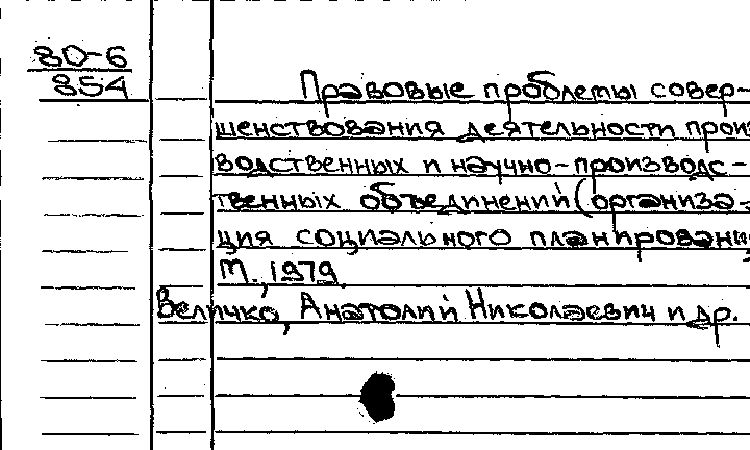 80-6
854
Правовые проблемы совер-
шенствования деятельности произ
водственных и научно-производс-
твенных объединений (организа-
ция социального планирования
М., 1979.
Величко, Анатолий Николаевич и др.